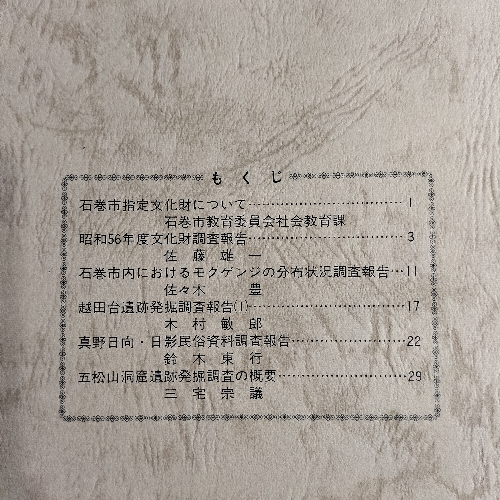 もくじ
石巻市指定文化財について……………………………1
石巻市教育委員会社会教育課
昭和56年度文化財調査報告……………………………3
佐藤雄一
石巻市内におけるモクゲンジの分布状況調査報告…11
佐々木　豊
越田台遺跡発掘調査報告(1)……………………………17
木村敏郎
真野日向・日影民俗資料調査報告……………………22
鈴木東行
五松山洞窟遺跡発掘調査の概要………………………29
三宅宗議